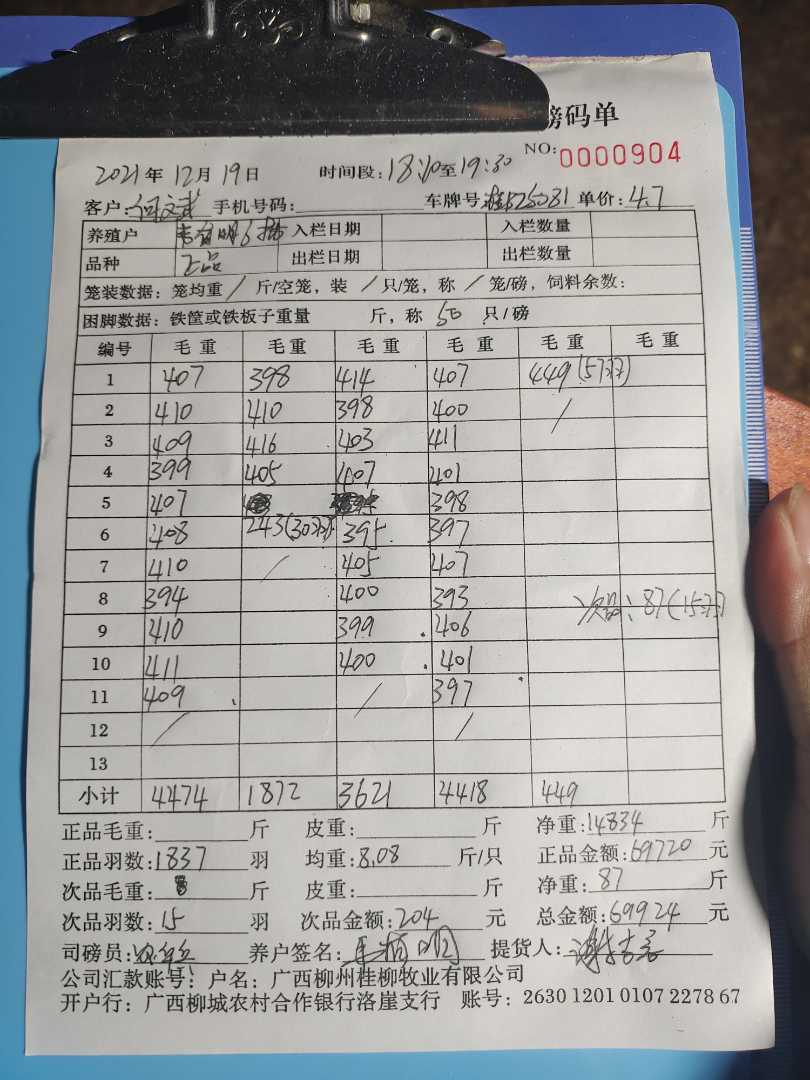 磅码单
NO: 0000904
2021年12月19日 时间段:18:10至19:30
客户: 手机号码: 车牌号: 单价:4.7
养殖户 入栏日期 入栏数量
品种 正品 出栏日期 出栏数量
笼装数据:笼均重/斤/空笼,装/只/笼,称/笼/磅,饲料余数:
困脚数据:铁筐或铁板子重量 斤,称50只/磅
编号 毛重 毛重 毛重 毛重 毛重 毛重
1 407 398 414 407 449(57只)
2 410 410 398 400 /
3 409 416 403 411
4 399 405 407 401
5 407 398
6 408 243(30只) 395 397
7 410 / 405 407
8 394 400 393 次品:87(15只)
9 410 399 406
10 411 400 401
11 409 / 397
12 / /
13
小计 4474 1872 3621 4418 449
正品毛重: 斤 皮重: 斤 净重:14834斤
正品羽数:1837羽 均重:8.08斤/只 正品金额:69720元
次品毛重: 斤 皮重: 斤 净重:87斤
次品羽数:15羽 次品金额:204元 总金额:69924元
司磅员: 养户签名: 提货人:
公司汇款账号:户名:广西柳州桂柳牧业有限公司
开户行:广西柳城农村合作银行洛崖支行 账号:2630 1201 0107 2278 67